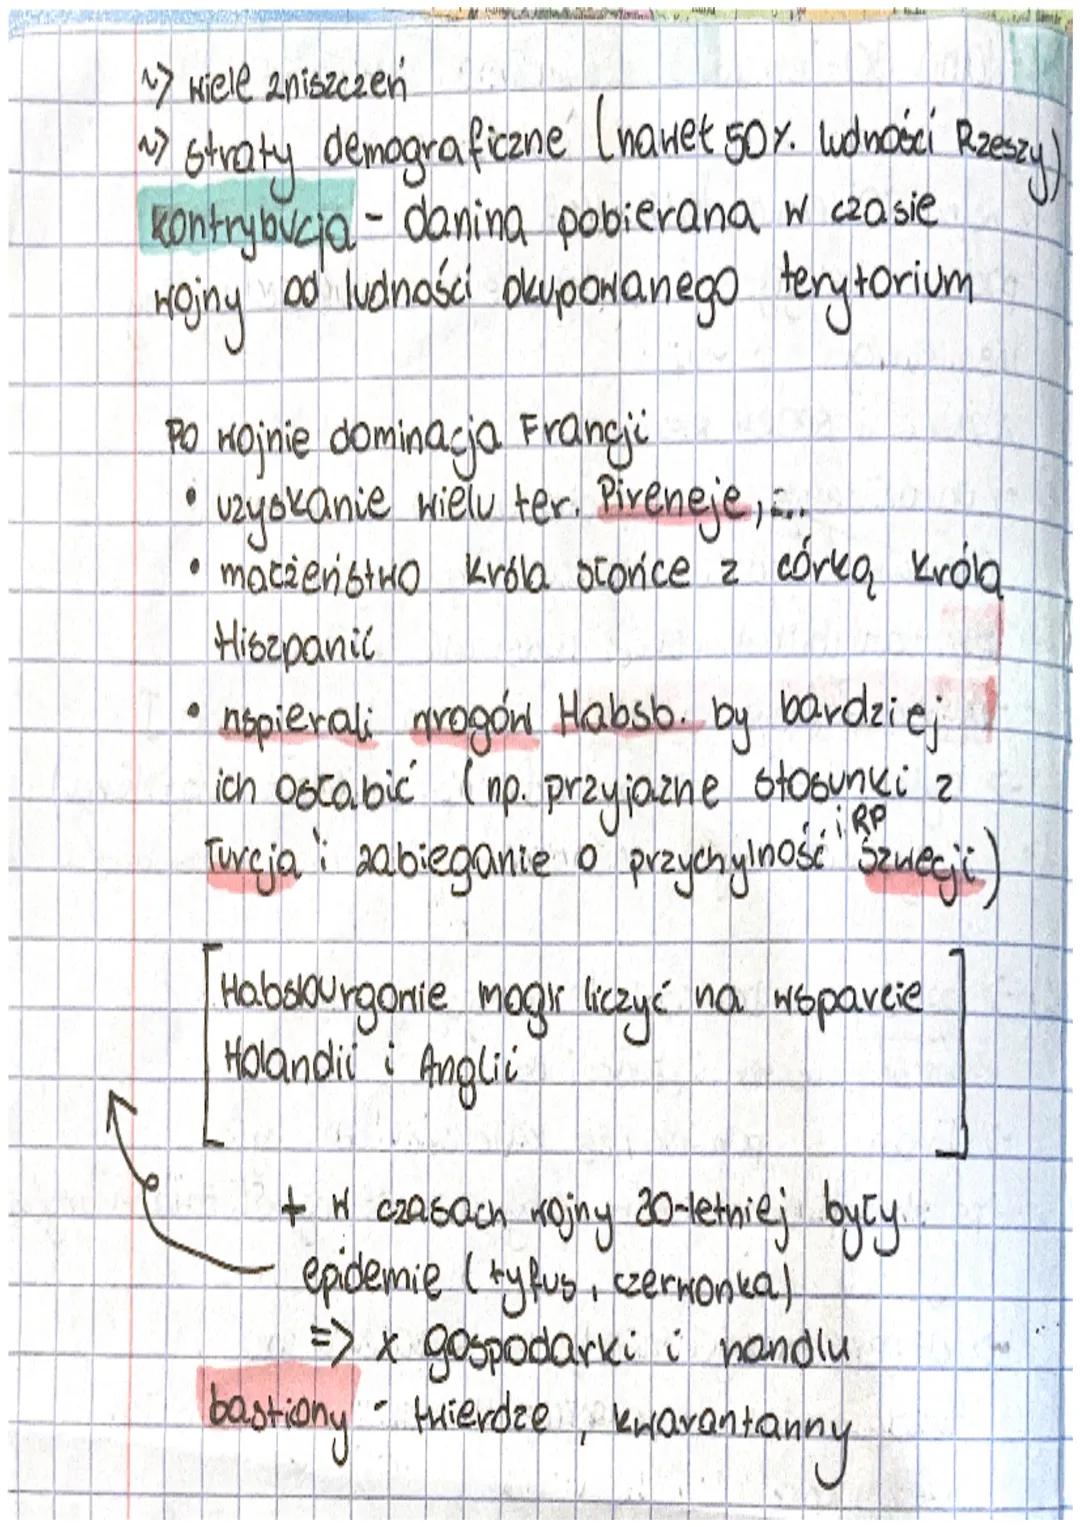 ~> wiele zniszczeń
~> straty demograficzne (nawet 50%. ludności Rzeszy)
kontrybucja - danina pobierana w czasie
wojny od ludności okupowanego terytorium
Po wojnie dominacja Francji
• uzyskanie wielu ter. Pireneje, ...
• małżeństwo króla słońce z córką króla
Hiszpanii
• wspierali wrogów Habsb. by bardziej
ich osłabić (np. przyjazne stosunki z
i RP
Turcją i zabieganie o przychylność Szwecji)
Habsburgowie mogli liczyć na wsparcie
Holandii i Anglii
+ w czasach wojny 30-letniej były
epidemie (tyfus, czerwonka)
=> x gospodarki i handlu
bastiony - twierdze, kwarantanny